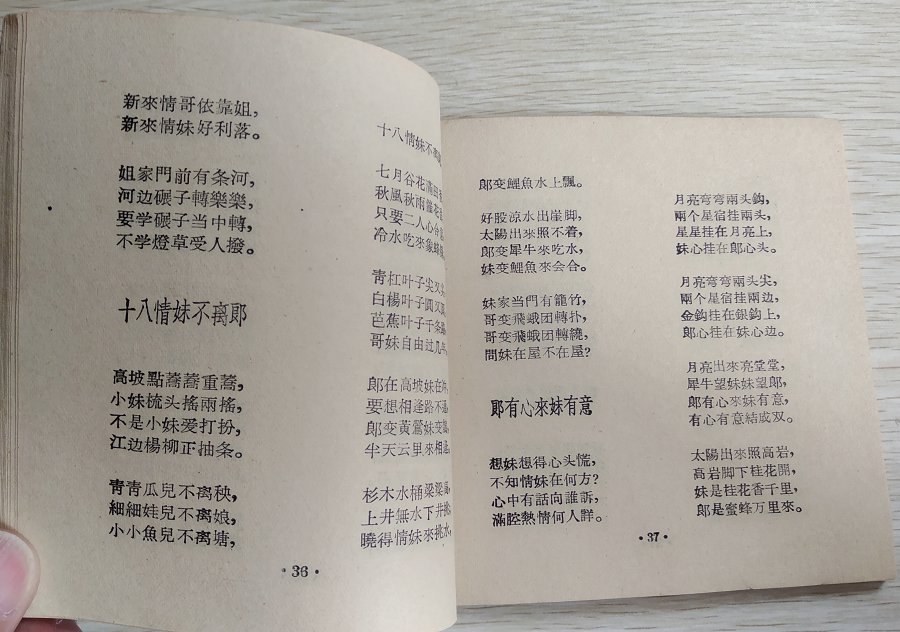 新來情哥依靠姐，
新來情妹好利落。
姐家門前有条河，
河边碾子轉樂樂，
要学碾子当中轉，
不学燈草受人撥。
十八情妹不离郎
高坡點蕎蕎重蕎，
小妹梳头搖兩搖，
不是小妹爱打扮，
江边楊柳正抽条。
靑靑瓜兒不离秧，
細細娃兒不离娘，
小小魚兒不离塘，
十八情妹不离
七月谷花滿
秋風秋雨
只要二人心
冷水吃來象
靑杠叶子尖又
白楊叶子圓又
芭蕉叶子千条
哥妹自由过几
郎在高坡妹在
要想相逢路不
郎变黃鶯妹变
半天云里來相
杉木水桶梁梁
上井無水下井挑，
曉得情妹來挑水，
·36·
郎变鯉魚水上飄。
好股凉水出崖脚，
太陽出來照不着，
郎变犀牛來吃水，
妹变鯉魚來会合。
妹家当門有籠竹，
哥变飛蛾团轉扑，
哥变飛蛾团轉繞，
問妹在屋不在屋？
郎有心來妹有意
想妹想得心头慌，
不知情妹在何方？
心中有話向誰訴，
滿腔熱情何人詳。
月亮弯弯兩头鈎，
兩个星宿挂兩头，
星星挂在月亮上，
妹心挂在郎心头。
月亮弯弯兩头尖，
兩个星宿挂兩边，
金鈎挂在銀鈎上，
郎心挂在妹心边。
月亮出來亮堂堂，
犀牛望妹妹望郎，
郎有心來妹有意，
有心有意結成双。
太陽出來照高岩，
高岩脚下桂花開，
妹是桂花香千里，
郎是蜜蜂万里來。
·37·